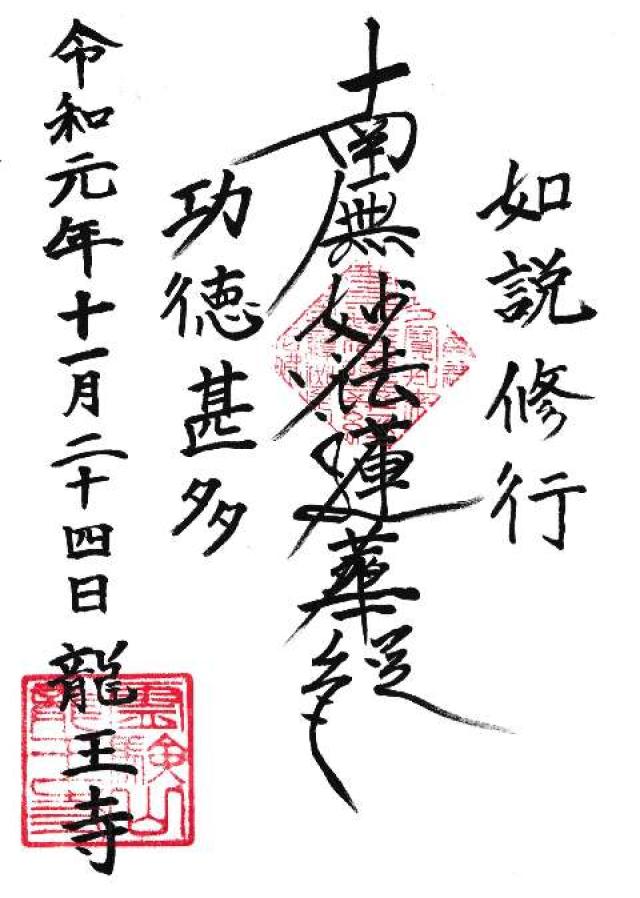 如説修行
南無妙法蓮華経
功徳甚多
令和元年十一月二十四日 龍王寺
霊験山